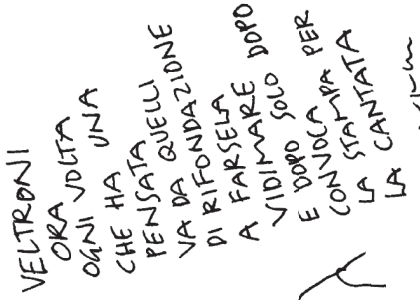 VELTRONI
ORA VOLTA
OGNI UNA
CHE HA
PENSATA
VA DA QUELLI
DI RIFONDAZIONE
A FARSELA
VIDIMARE DOPO
E DOPO SOLO
CONVOCA PER
LA STAMPA
LA CANTATA